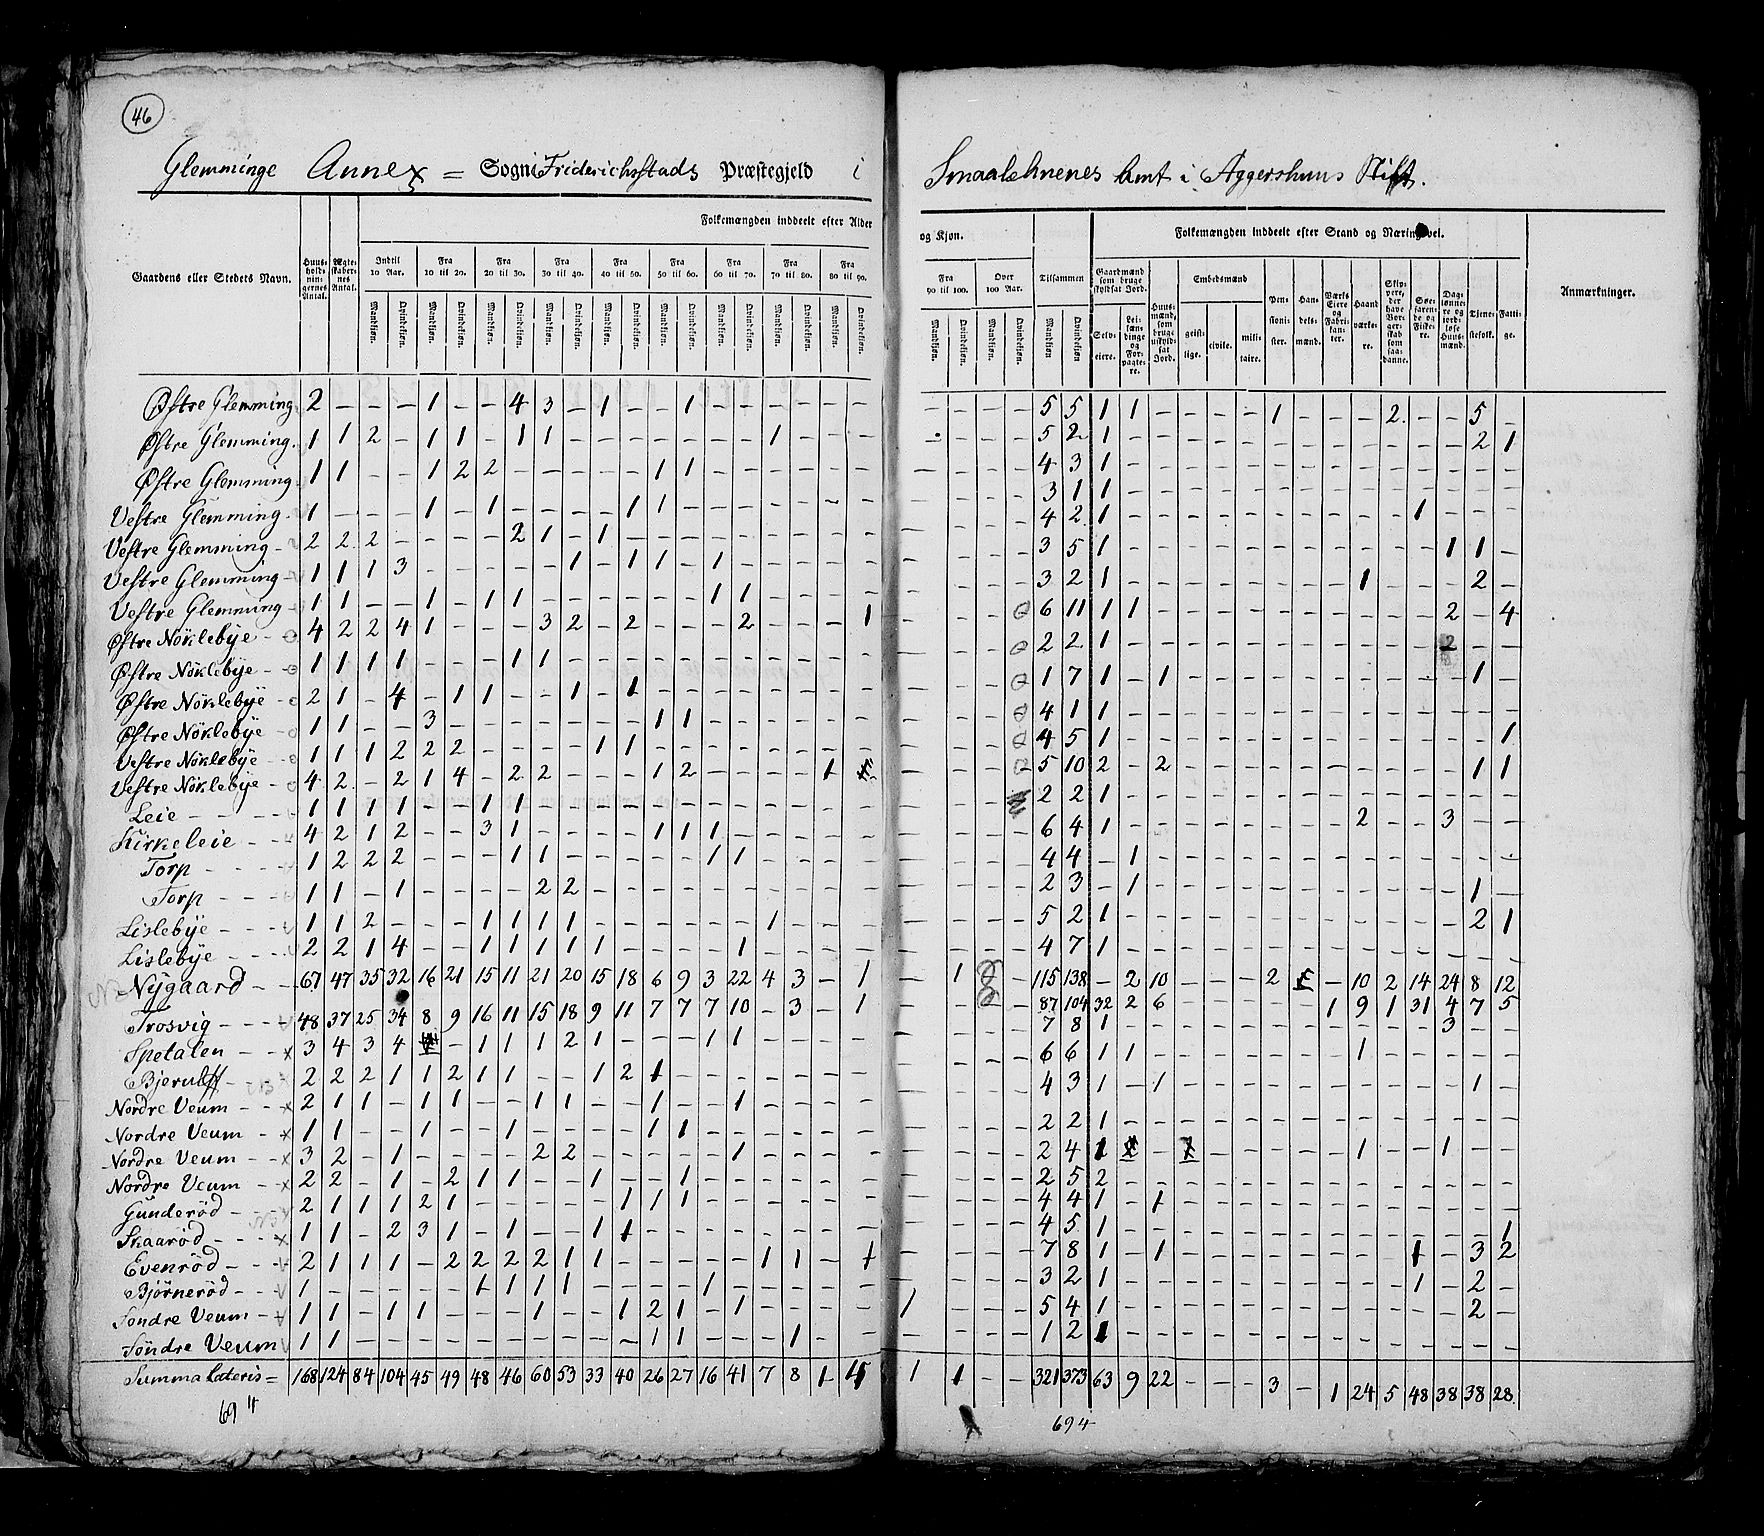 46
Glemminge Annex = Sogn i Friderichsstads Præstegjeld i Smaalehnenes Amt i Aggershuus Stift.
Folkemængden inddeelt efter Alder og Kjøn. Folkemængden inddeelt efter Stand og Næringsvei.
Gaardens eller Stedets Navn. Huusholdningernes Antal. Ægteskabernes Antal. Indtil 10 Aar. Fra 10 til 20. Fra 20 til 30. Fra 30 til 40. Fra 40 til 50. Fra 50 til 60. Fra 60 til 70. Fra 70 til 80. Fra 80 til 90. Fra 90 til 100. Over 100 Aar. Tilsammen Gaardmænd som bruge skyldsat Jord. Huusmænd, som bruge uskyldsat Jord. Embedsmænd Pensionister. Handelsmænd. Værks Eiere og Fabrikanter. Haandværkere. Skippere, der have Borgerskab som saadanne. Søefarende og Fiskere. Daglønnere og jordløse Huusmænd. Tjenestefolk. Fattige. Anmærkninger.
Mandkjøn. Qvindekjøn. Mandkjøn. Qvindekjøn. Mandkjøn. Qvindekjøn. Mandkjøn. Qvindekjøn. Mandkjøn. Qvindekjøn. Mandkjøn. Qvindekjøn. Mandkjøn. Qvindekjøn. Mandkjøn. Qvindekjøn. Mandkjøn. Qvindekjøn. Mandkjøn. Qvindekjøn. Mandkjøn. Qvindekjøn. Mandkjøn Qvindekjøn Selveiere. Leilændinge og Forpagtere. geistlige. civile. militaire.
Østre Glemming 2 – – – 1 – – 4 3 – 1 – – 1 – – – – – – – – – – 5 5 1 1 – – – – 1 – – – 2. – – 5 –
Østre Glemming. 1 1 2 – 1 1 – 1 1 – – – – – – – 1 – – – – – – – 5 2 1 – – – – – – – – – – – – 2 1
Østre Glemming 1 1 – – 1 2 2 – – – – – 1 1 – – – – – – – – – – 4 3 1 – – – – – – – – – – – – – –
Vestre Glemming. 1 – – – 1 – 1 – – – – 1 1 – – – – – – – – – – – 3 1 1 – – – – – – – – – – – – – –
Vestre Glemming – 2 2 2 – – – – 2 1 – 1 – – – – – – – – – – – – – 4 2 1 – – – – – – – – – – 1 – – –
Vestre Glemming – 1 1 1 3 – – – – – 1 – 1 1 – 1 – – – – – – – – – 3 5 1 – – – – – – – – – – – 1 1 –
Vestre Glemming 1 1 – – 1 – 1 1 – – – – – – 1 1 – – – – – – – – 3 2 1 – – – – – – – – 1 – – – 2 –
Østre Nöklebye – 4 2 2 4 1 – – – 3 2 – 2 – – – 2 – – – 1 – – – – 6 11 1 1 – – – – – – – – – – 2 – 4
Østre Nöklebye – 1 1 1 1 – – – 1 1 – – – – – – – – – – – – – – – 2 2 1 – – – – – – – – – – – 2 – –
Østre Nöklebye – 2 1 – 4 – 1 1 – – 1 – 1 – – – – – – – – – – – – 1 7 1 – 1 – – – – – – – – – – 1 –
Østre Nöklebye 1 1 – – 3 – – – – – – – 1 1 – – – – – – – – – – 4 1 1 – – – – – – – – – – – – – –
Vestre Nöklebye 1 1 1 2 2 2 – – – – 1 1 – – – – – – – – – – – – 4 5 1 – – – – – – – – – – – – – 1
Vestre Nöklebye – 4 2 – 2 1 4 – 2 2 – – – 1 2 – – – – 1 – – – – 5 10 2 – 2 – – – – – – – – – – 1 1
Leie – – – 1 1 1 1 – – 1 1 – – – – – – – – – – – – – – – – 2 2 1 – – – – – – – – – – – – – –
Kirkeleie – – 4 2 1 2 – – 3 1 – – – – 1 1 1 – – – – – – – – – 6 4 1 – – – – – – – – 2 – – 3 – –
Torp – – – 1 2 2 2 – – – 1 1 – – – – – 1 1 – – – – – – – – 4 4 – 1 – – – – – – – – – – – – –
Torp – – – 1 1 – 1 – – – – 2 2 – – – – – – – – – – – – – – 2 3 – 1 – – – – – – – – – – – 1 –
Lislebye – – – 1 1 2 – – – 1 1 1 1 – – – – – – 1 – – – – – – – 5 2 1 – – – – – – – – – – – – 2 1
Lislebye – – – 2 2 1 4 – – 1 1 1 1 1 – – – – 1 – – – – – – – – 4 7 1 – – – – – – – – – – – – – –
Nygaard – – 67 47 35 32 16 21 15 11 21 20 15 18 6 9 3 22 4 3 – 1 – 1 – – 115 138 – 2 10 – – – 2 – – 10 2 14 24 8 12
Trosvig – – – 48 37 25 34 8 9 16 11 15 18 9 11 7 7 7 10 – 3 – 1 – – – – 87 104 32 2 6 – – – – – 1 9 1 31 4 7 5
Spetalen – – 3 4 3 4 – 1 1 1 2 1 – – – 1 1 – – – – – – – – 7 8 1 – – – – – – – – – – – 3 – –
Bjerulff – 2 2 2 1 1 2 1 1 – – 1 2 1 – – – – – – – – – – – 6 6 1 1 – – – – – – – 1 – – – – –
Nordre Veum – – 2 1 1 – 1 1 – – 1 1 – – 1 – – 1 – – – – – – – – 4 3 1 – 1 – – – – – – – – – – 1 –
Nordre Veum – 1 1 – – 1 – – 1 – – – – 1 1 – – – – – – – – – – 2 2 1 – – – – – – – – – – – – – –
Nordre Veum – – 3 2 – 1 – – – – 2 2 – – – – – 1 – – – – – – – – 2 4 1 – – – – – – – 1 – – 1 – –
Nordre Veum – – 2 2 – 1 – 2 1 1 – – 1 – – 1 – – – – – – – – – – 2 5 2 – – – – – – – – – – – – – –
Gunderöd – – 2 1 1 1 2 1 – – – – – 1 1 1 – – – – – – – – – – 4 4 1 – 1 – – – – – – – – – – – –
Skaaröd – – – 1 1 – 2 3 1 – 1 – – 1 1 – – – – – – – – – – – – 4 5 1 – – – – – – – – – – – – – 1
Evenröd – – – 2 1 1 1 – 2 2 2 2 1 1 – – – – – 1 1 – 1 – – – – 7 8 1 – 1 – – – – – – – – 1 – 3 2
Bjørneröd – – 1 – – – – – 1 1 1 1 – – – – 1 – – – – – – – – – 3 2 1 – – – – – – – – – – 1 – 2 –
Söndre Veum – 1 1 – 1 1 – – – 1 – – 1 2 1 – 1 – – – – 1 – – – 5 4 1 – – – – – – – – – – – – 2 –
Söndre Veum 1 1 – – – – – – – – – – 1 1 – – – 1 – – – – – – 1 2 1 – – – – – – – – – – – – – –
Summa Lateris = 168 124 84 104 45 49 48 46 60 53 33 40 26 27 16 41 7 8 1 1 1 – – 321 373 63 9 22 – – – 3 – 1 24 5 48 38 38 28.
694
694